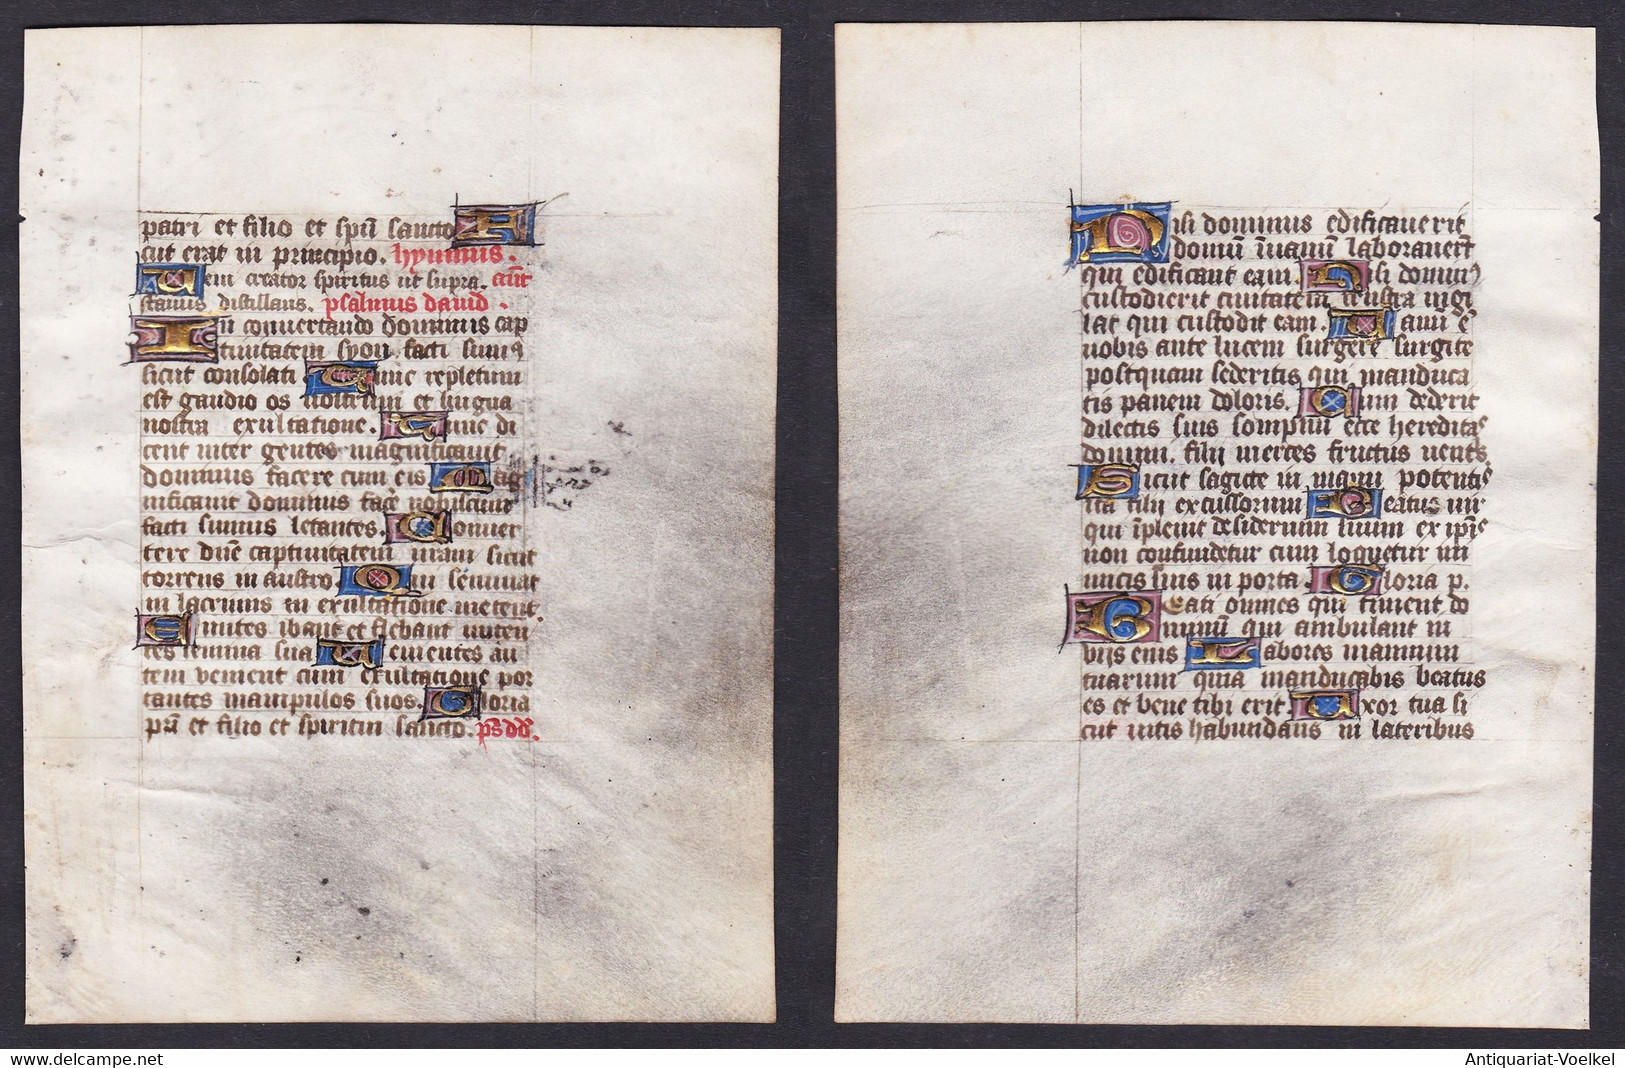 patri et filio et spū sancto S
cut erat in principio. hymnus.
Ueni creator spiritus ut supra. añt
stanus distillans. psalmus david.
In convertendo dominus cap
tivitatem syon. facti sumꝰ
sicut consolati. Tunc repletum
est gaudio os nostrum et lingua
nostra exultatione. Tunc di
cent inter gentes magnificavit
dominus facere cum eis. Mag
nificavit dominus face nobiscum
facti sumus letantes. Conver
tere dn̄e captivitatem nram sicut
torrens in austro. Qui seminat
in lacrimis in exultatione metent.
Euntes ibant et flebant mitten
tes semina sua. Uenientes au
tem venient cum exultatione por
tantes manipulos suos. Gloria
pr̄i et filio et spiritui sancto. ps dd.
Nisi dominus edificaverit
domū ī vanū laboraverūt
qui edificant eam. Nisi dominꝰ
custodierit civitatem frustra vigi
lat qui custodit eam. Uanū ē
vobis ante lucem surgere surgite
postquam sederitis qui manduca
tis panem doloris. Cum dederit
dilectis suis sompnū ecce hereditas
domini. filii merces fructus ventris
Sicut sagitte in manu potentis
ita filii excussorum. Beatus vir
qui īplevit desiderium suum ex ipis
non confundetur cum loquetur ini
micis suis in porta. Gloria p.
Beati omnes qui timent do
minum qui ambulant in
viis eius. Labores manuum
tuarum quia manducabis beatus
es et bene tibi erit. Uxor tua si
cut vitis habundans in lateribus
Antiquariat-Voelkel
delcampe.net